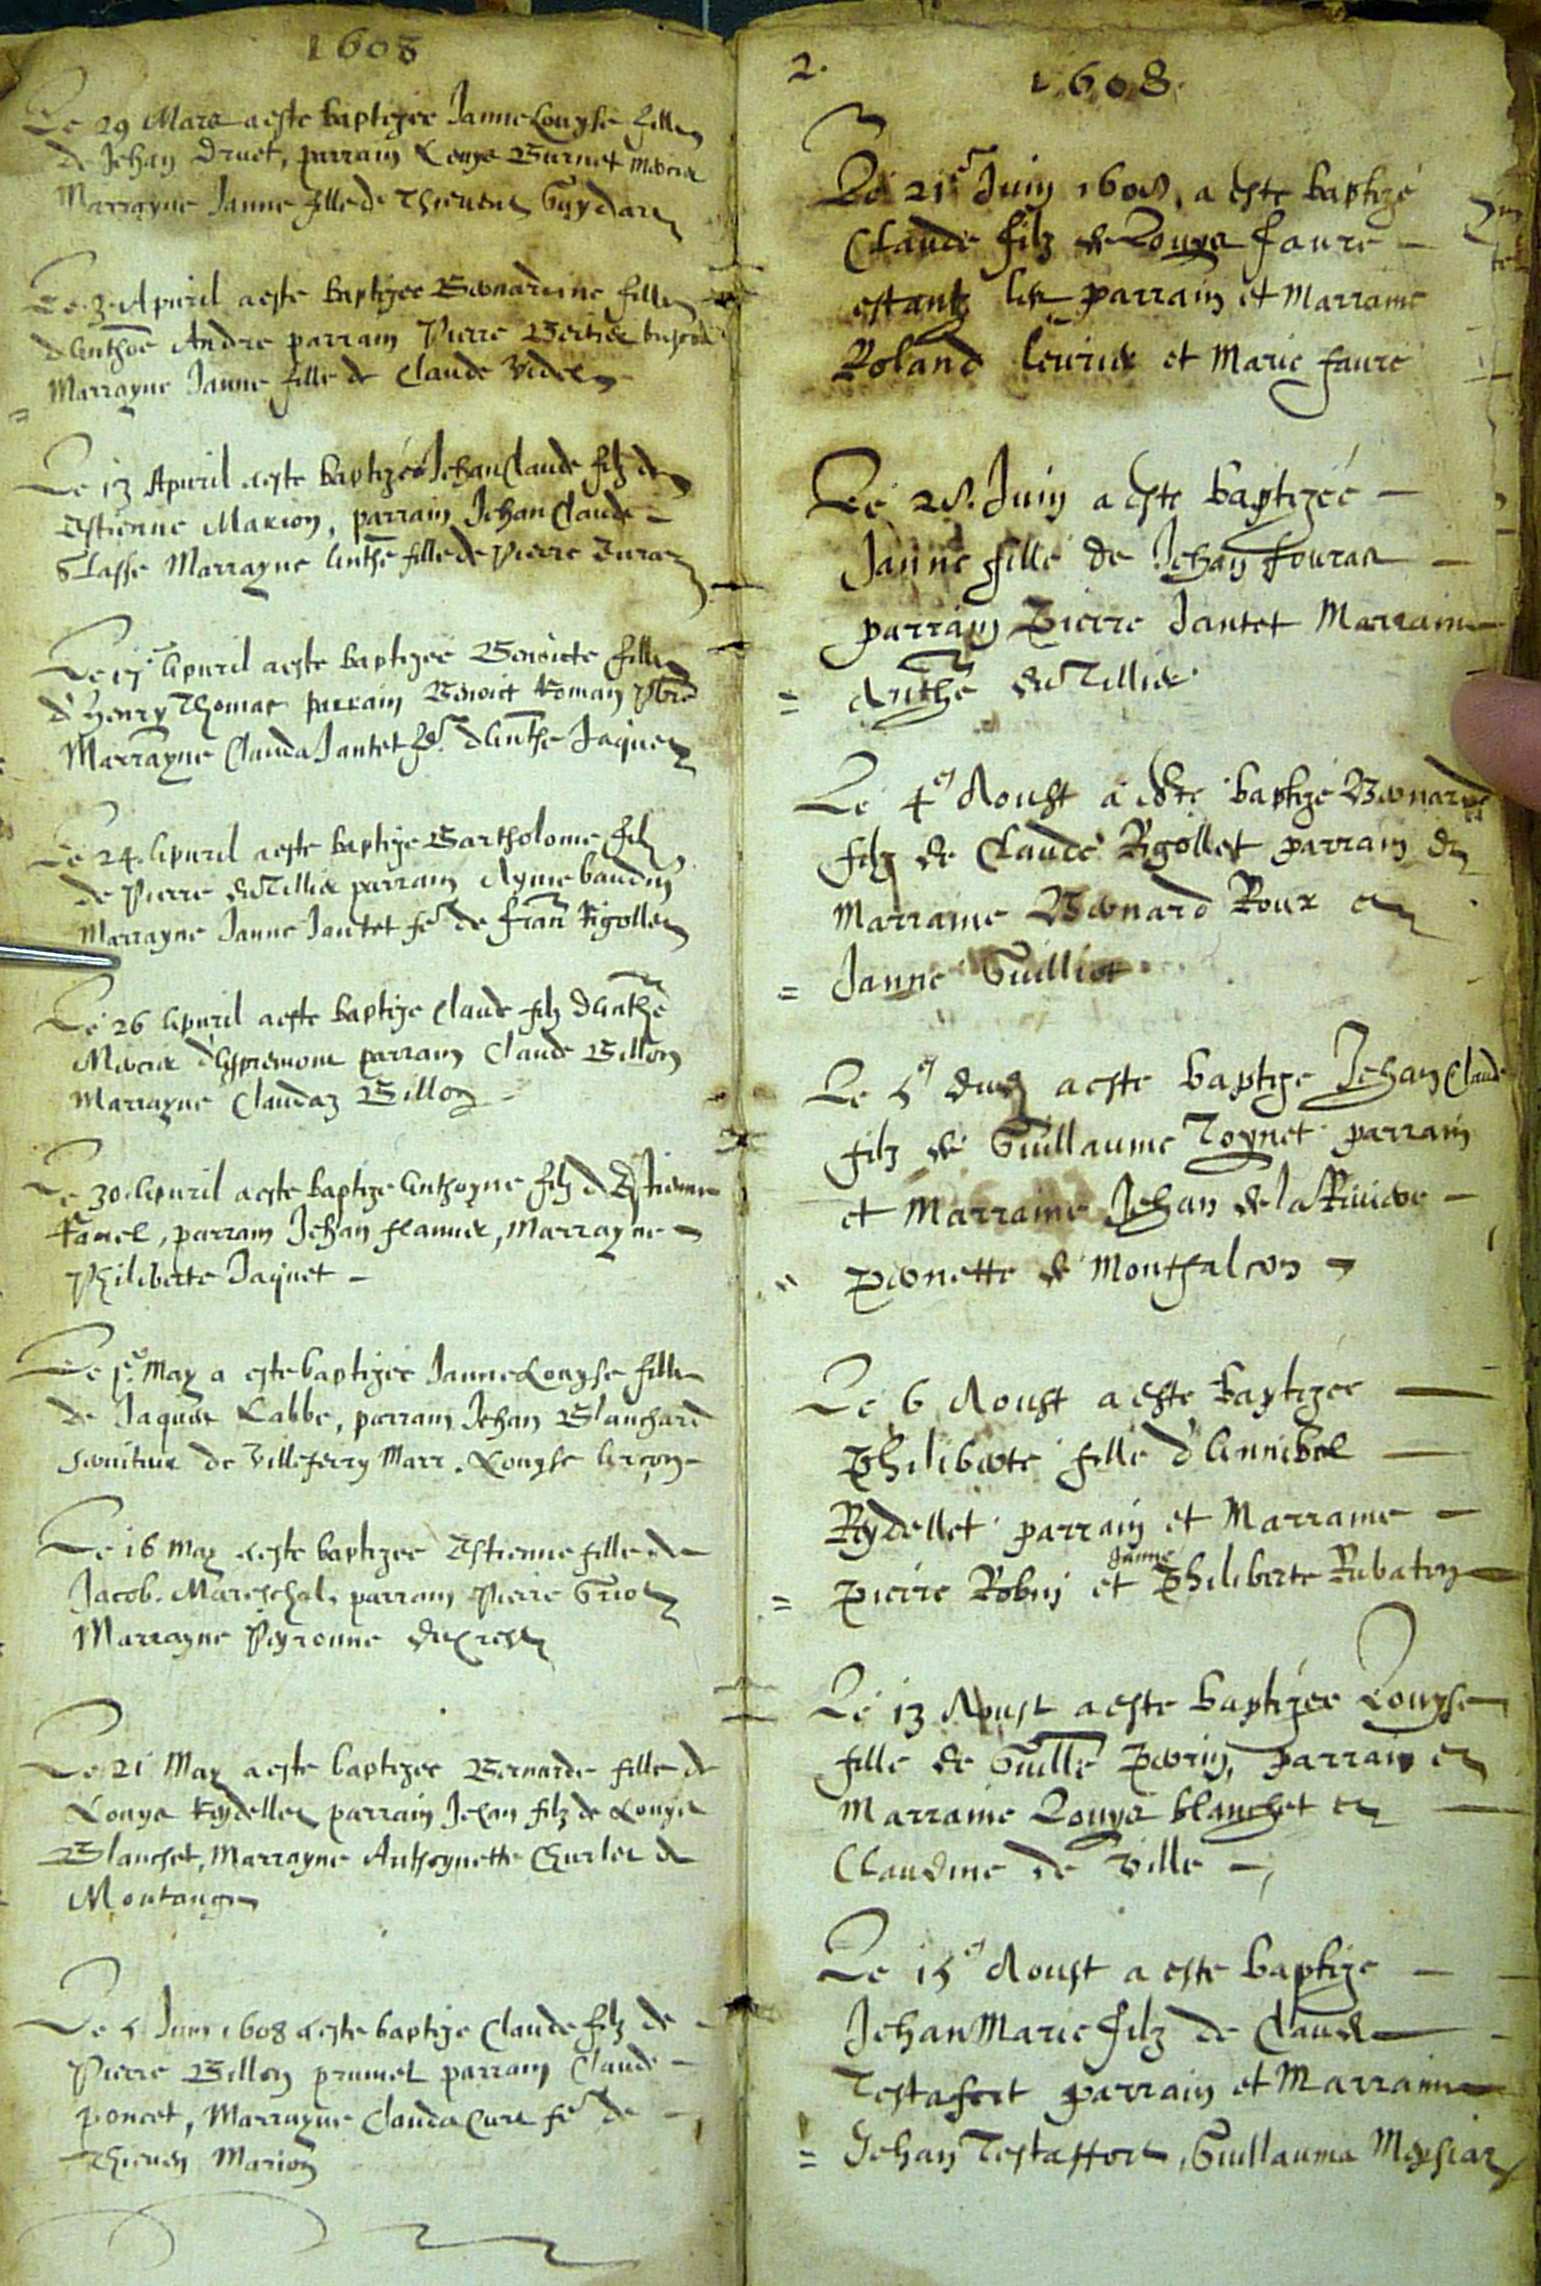 1608
Le 29 Mars a este baptizee Janne Louyse fille
de Jehan Druet, parrain Louys Burnet
Marrayne Janne fille de Thievent Guydar
Le 3 Apuril a este baptizee Bernardine fille
d'Anthoe Andre parrain Pierre Bertier
Marrayne Janne fille de Claude Videl
Le 13 Apuril a este baptizé Jehan Claude filz de
Estienne Marion, parrain Jehan Claude
Marrayne Anthe fille de Pierre
Apuril a este baptizee Benoicte fille
d'Henry Thomas parrain Benoict Roman pbre
Marrayne Clauda Jantet fe d'Anthe Jaquet
Le 24 Apuril a este baptize Bartholome filz
de Pierre du Tillier parrain Ayme baudin
Marrayne Janne Jantet fe de Fran Rigollet
Le 26 Apuril a este baptize Claude filz d'Anthe
Mercier d'Aspremont parrain Claude Billon
Marrayne Claudaz Billon
Le 30 Apuril a este baptize Anthoyne filz d'Estienne
parrain Jehan flamier, Marrayne
Philiberte Jaquet
Le pr May a este baptizee Janne Louyse fille
de Jaques Labbe, parrain Jehan Blanchard
serviteur de Villeferry Marr. Louyse Arcon
Le 16 May a este baptizee Estienne fille de
Jacob Mareschal, parrain Pierre
Marrayne Peyronne
Le 21 May a este baptizee Bernarde fille de
Louys Rydellet parrain Jehan filz de Louys
Blanchet, Marrayne Anthoynette Charlet de
Montange
Le 5 Juin 1608 a este baptize Claude filz de
Pierre Billon prumet parrain Claude
poncet, Marrayne Clauda Curt fe de
Thieven Marion
2.
1608.
Le 21e Juin 1608, a este baptizé
Claude filz de Louys faure
estantz les parrain et Marraine
Roland et Marie faure
Le 28. Juin a este baptizée
Janne fille de Jehan fouras
parrain Pierre Jantet Marraine
Anthe du Tillier
Le 4e Aoust a este baptizé Bernard
filz de Claude Rigollet parrain et
Marraine Bernard Roux et
Janne Guilliot
Le 5e dud a este baptize Jehan Claude
filz de Guillaume Toynet parrain
et Marraine Jehan de la Riviere
pernette de Montfalcon
Le 6 Aoust a este baptizée
Philiberte fille d'Annibal
Rydellet parrain et Marraine
Janne
Pierre Robin et Philiberte Rubatin
Le 13 Aoust a este baptizée Louyse
fille de Guille perrin, parrain et
Marraine Louys blanchet et
Claudine de Ville
Le 15e Aoust a este baptize
Jehan Marie filz de Claude
Testafort parrain et Marraine
Jehan Testaffort, Guillauma Meysiat